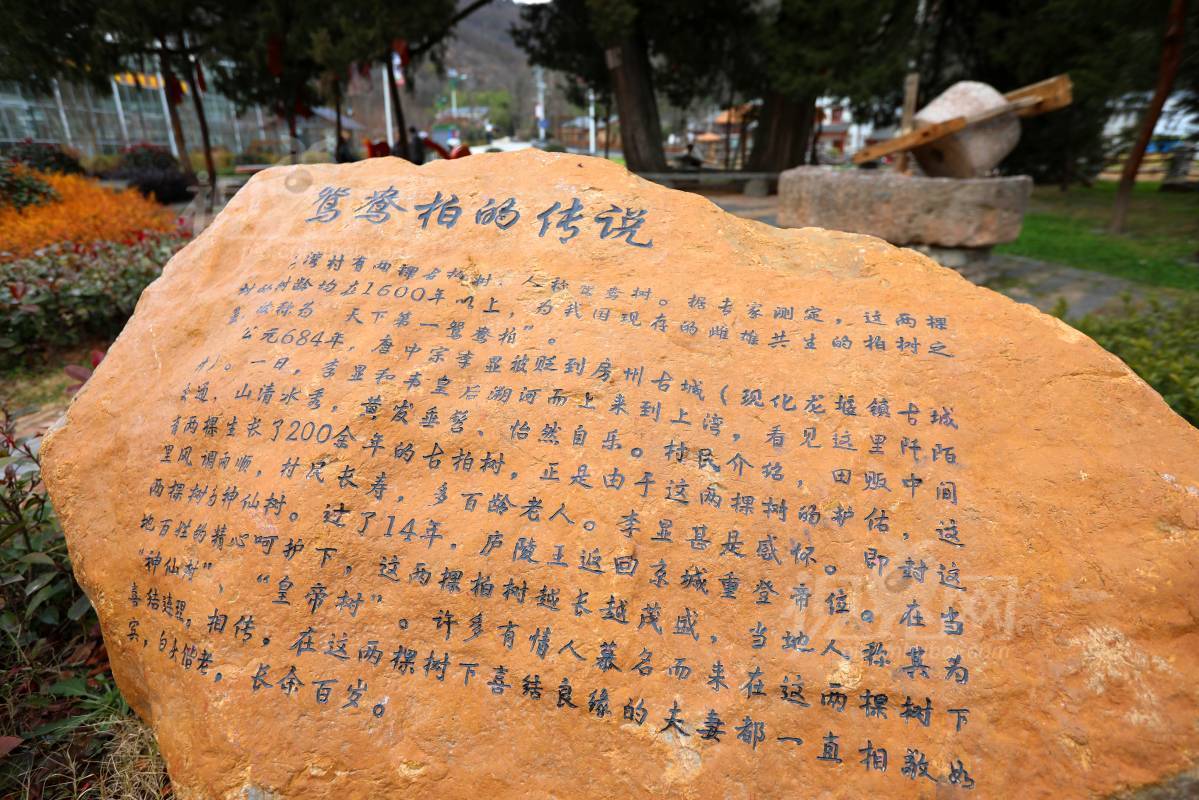 鸳鸯柏的传说
湾村有两棵古柏树,人称鸳鸯树。据专家测定,这两棵
树的树龄均在1600年以上,为我国现存的雌雄共生的柏树之
最,被称为“天下第一鸳鸯柏”。
公元684年,唐中宗李显被贬到房州古城(现化龙堰镇古城
村)。一日,李显和韦皇后溯河而上来到上湾,看见这里阡陌
交通,山清水秀,黄发垂髫、怡然自乐。村民介绍,田畈中间
有两棵生长了200余年的古柏树,正是由于这两棵树的护估,这
里风调雨顺,村民长寿,多百龄老人。李显甚是感怀。即封这
两棵树为神仙树。过了14年,庐陵王返回京城重登帝位。在当
地百姓的精心呵护下,这两棵柏树越长越茂盛,当地人称其为
“神仙树”、“皇帝树”。许多有情人慕名而来在这两棵树下
喜结连理,相传,在这两棵树下喜结良缘的夫妻都一直相敬如
宾,白头偕老,长余百岁。